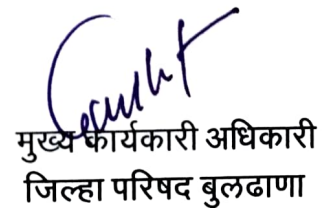 मुख्य कार्यकारी अधिकारी
जिल्हा परिषद बुलढाणा